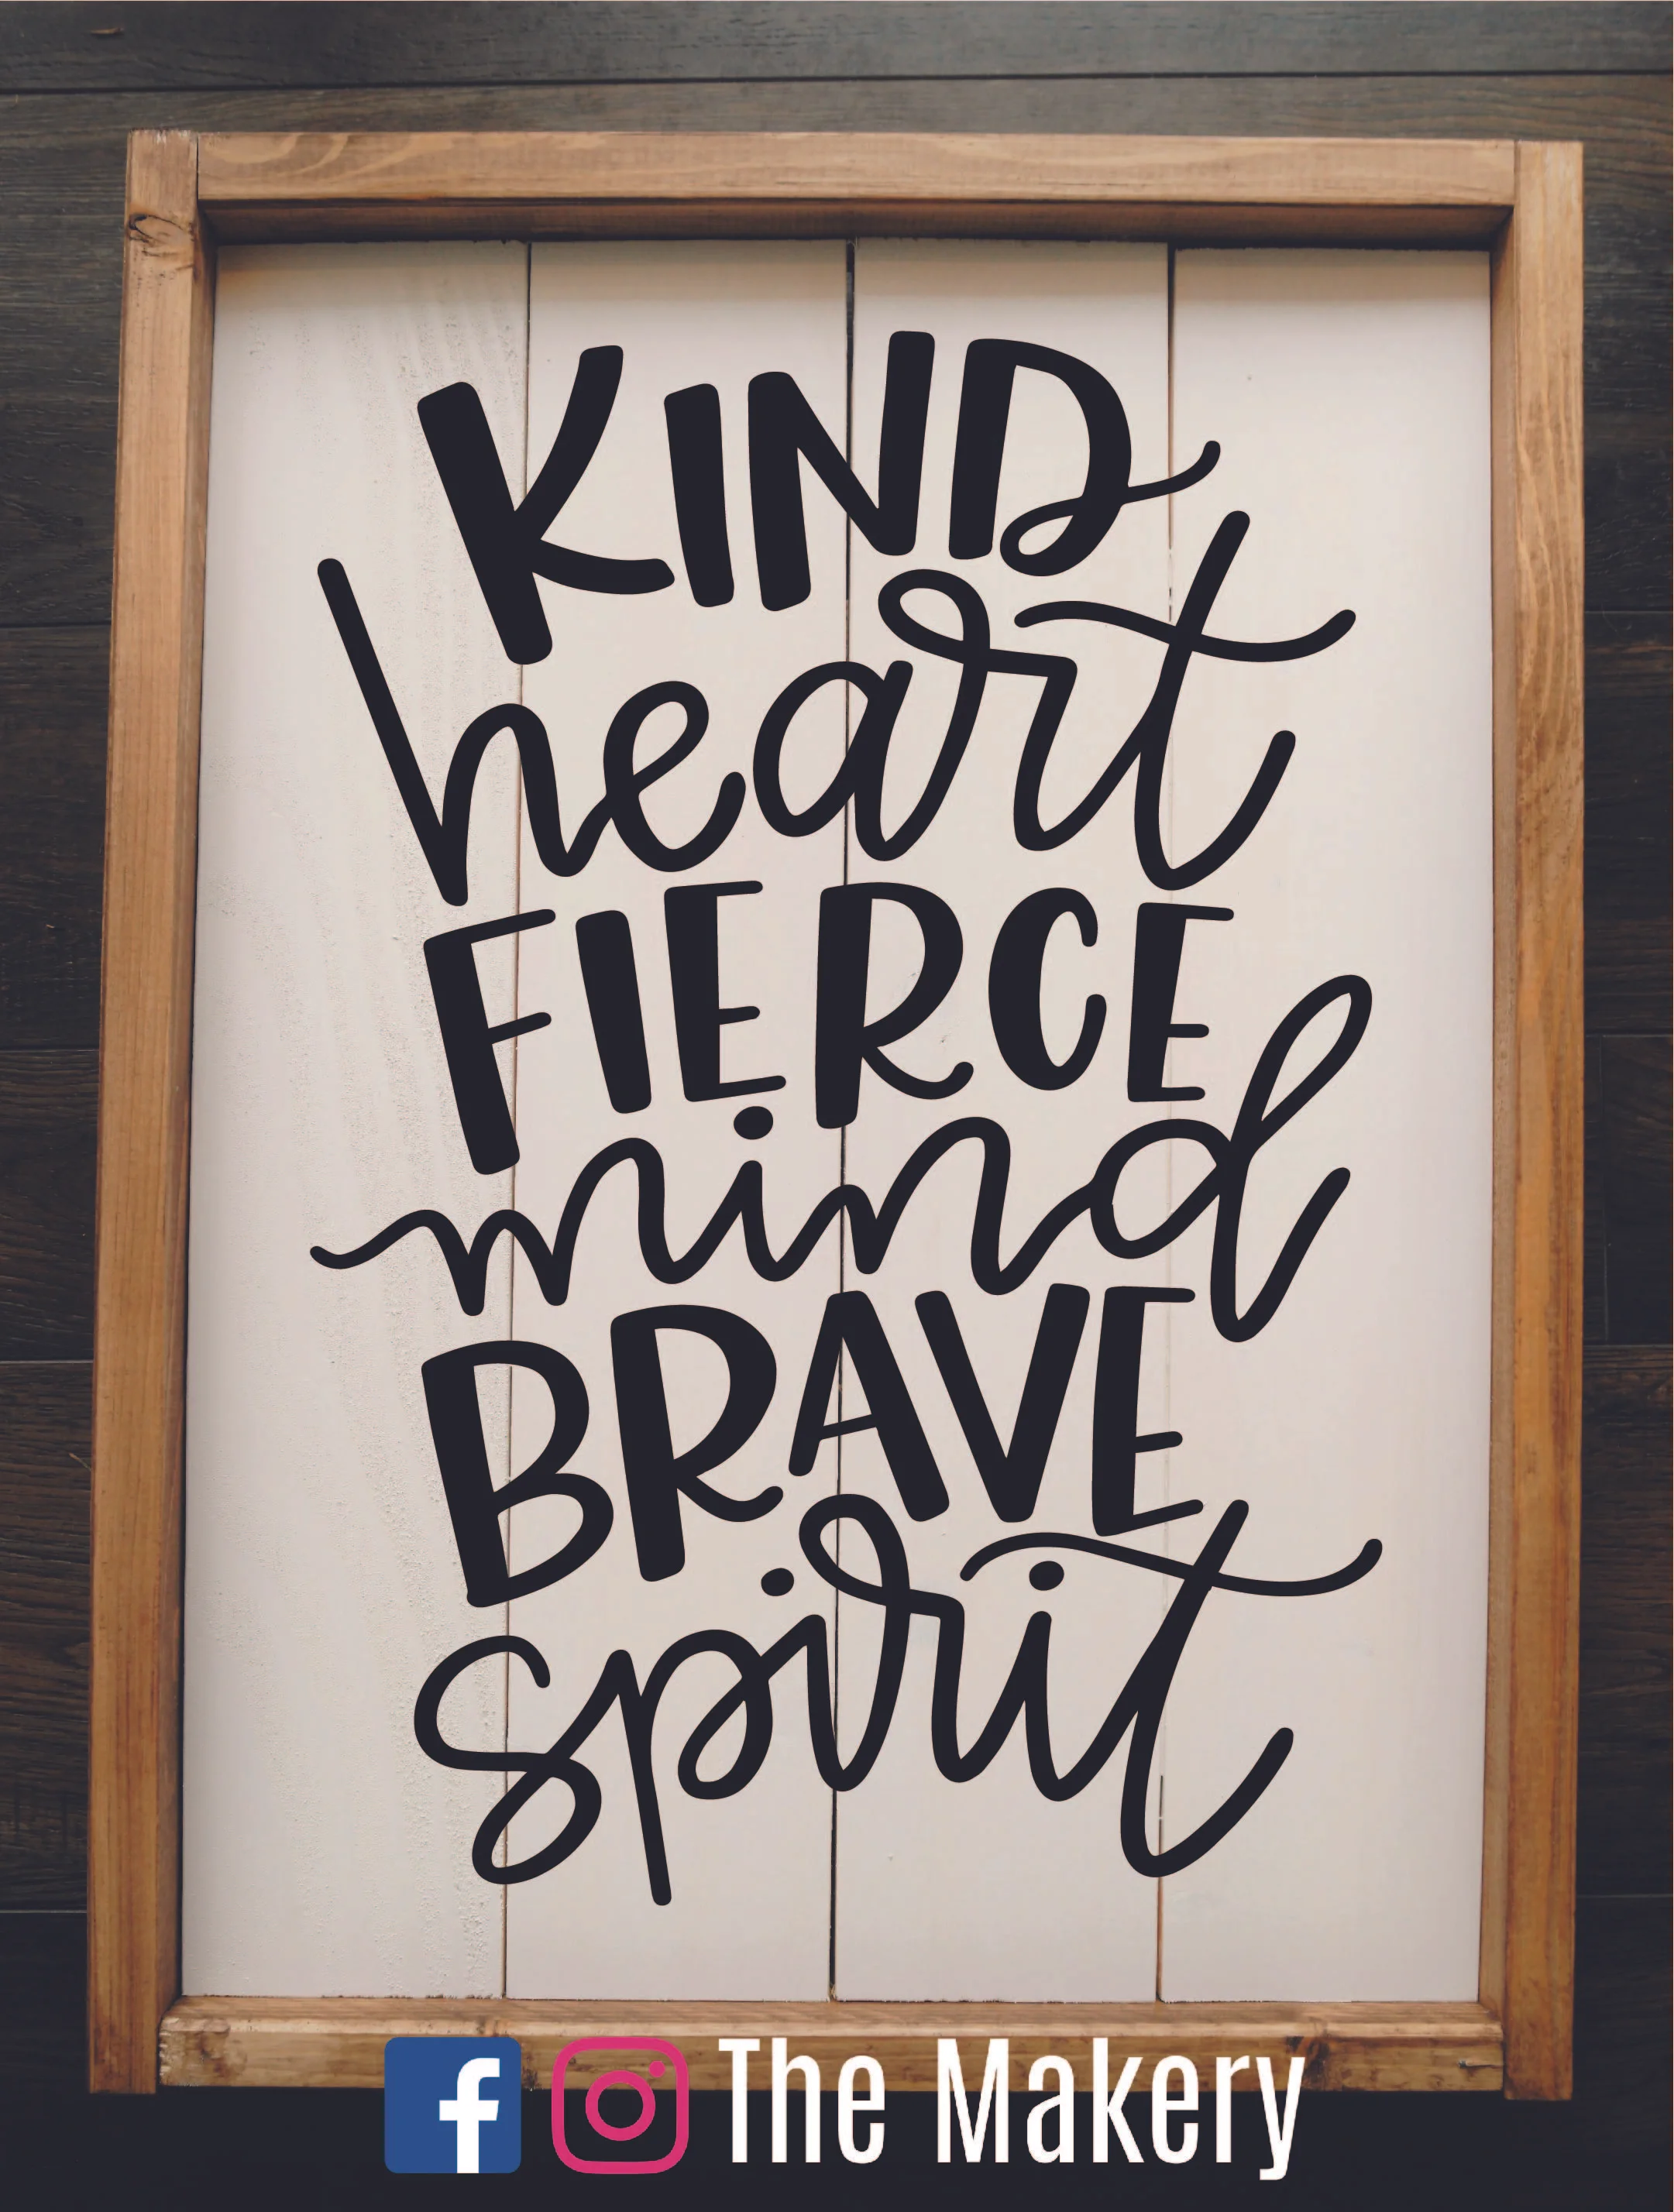 KIND
heart
FIERCE
mind
BRAVE
spirit
The Makery